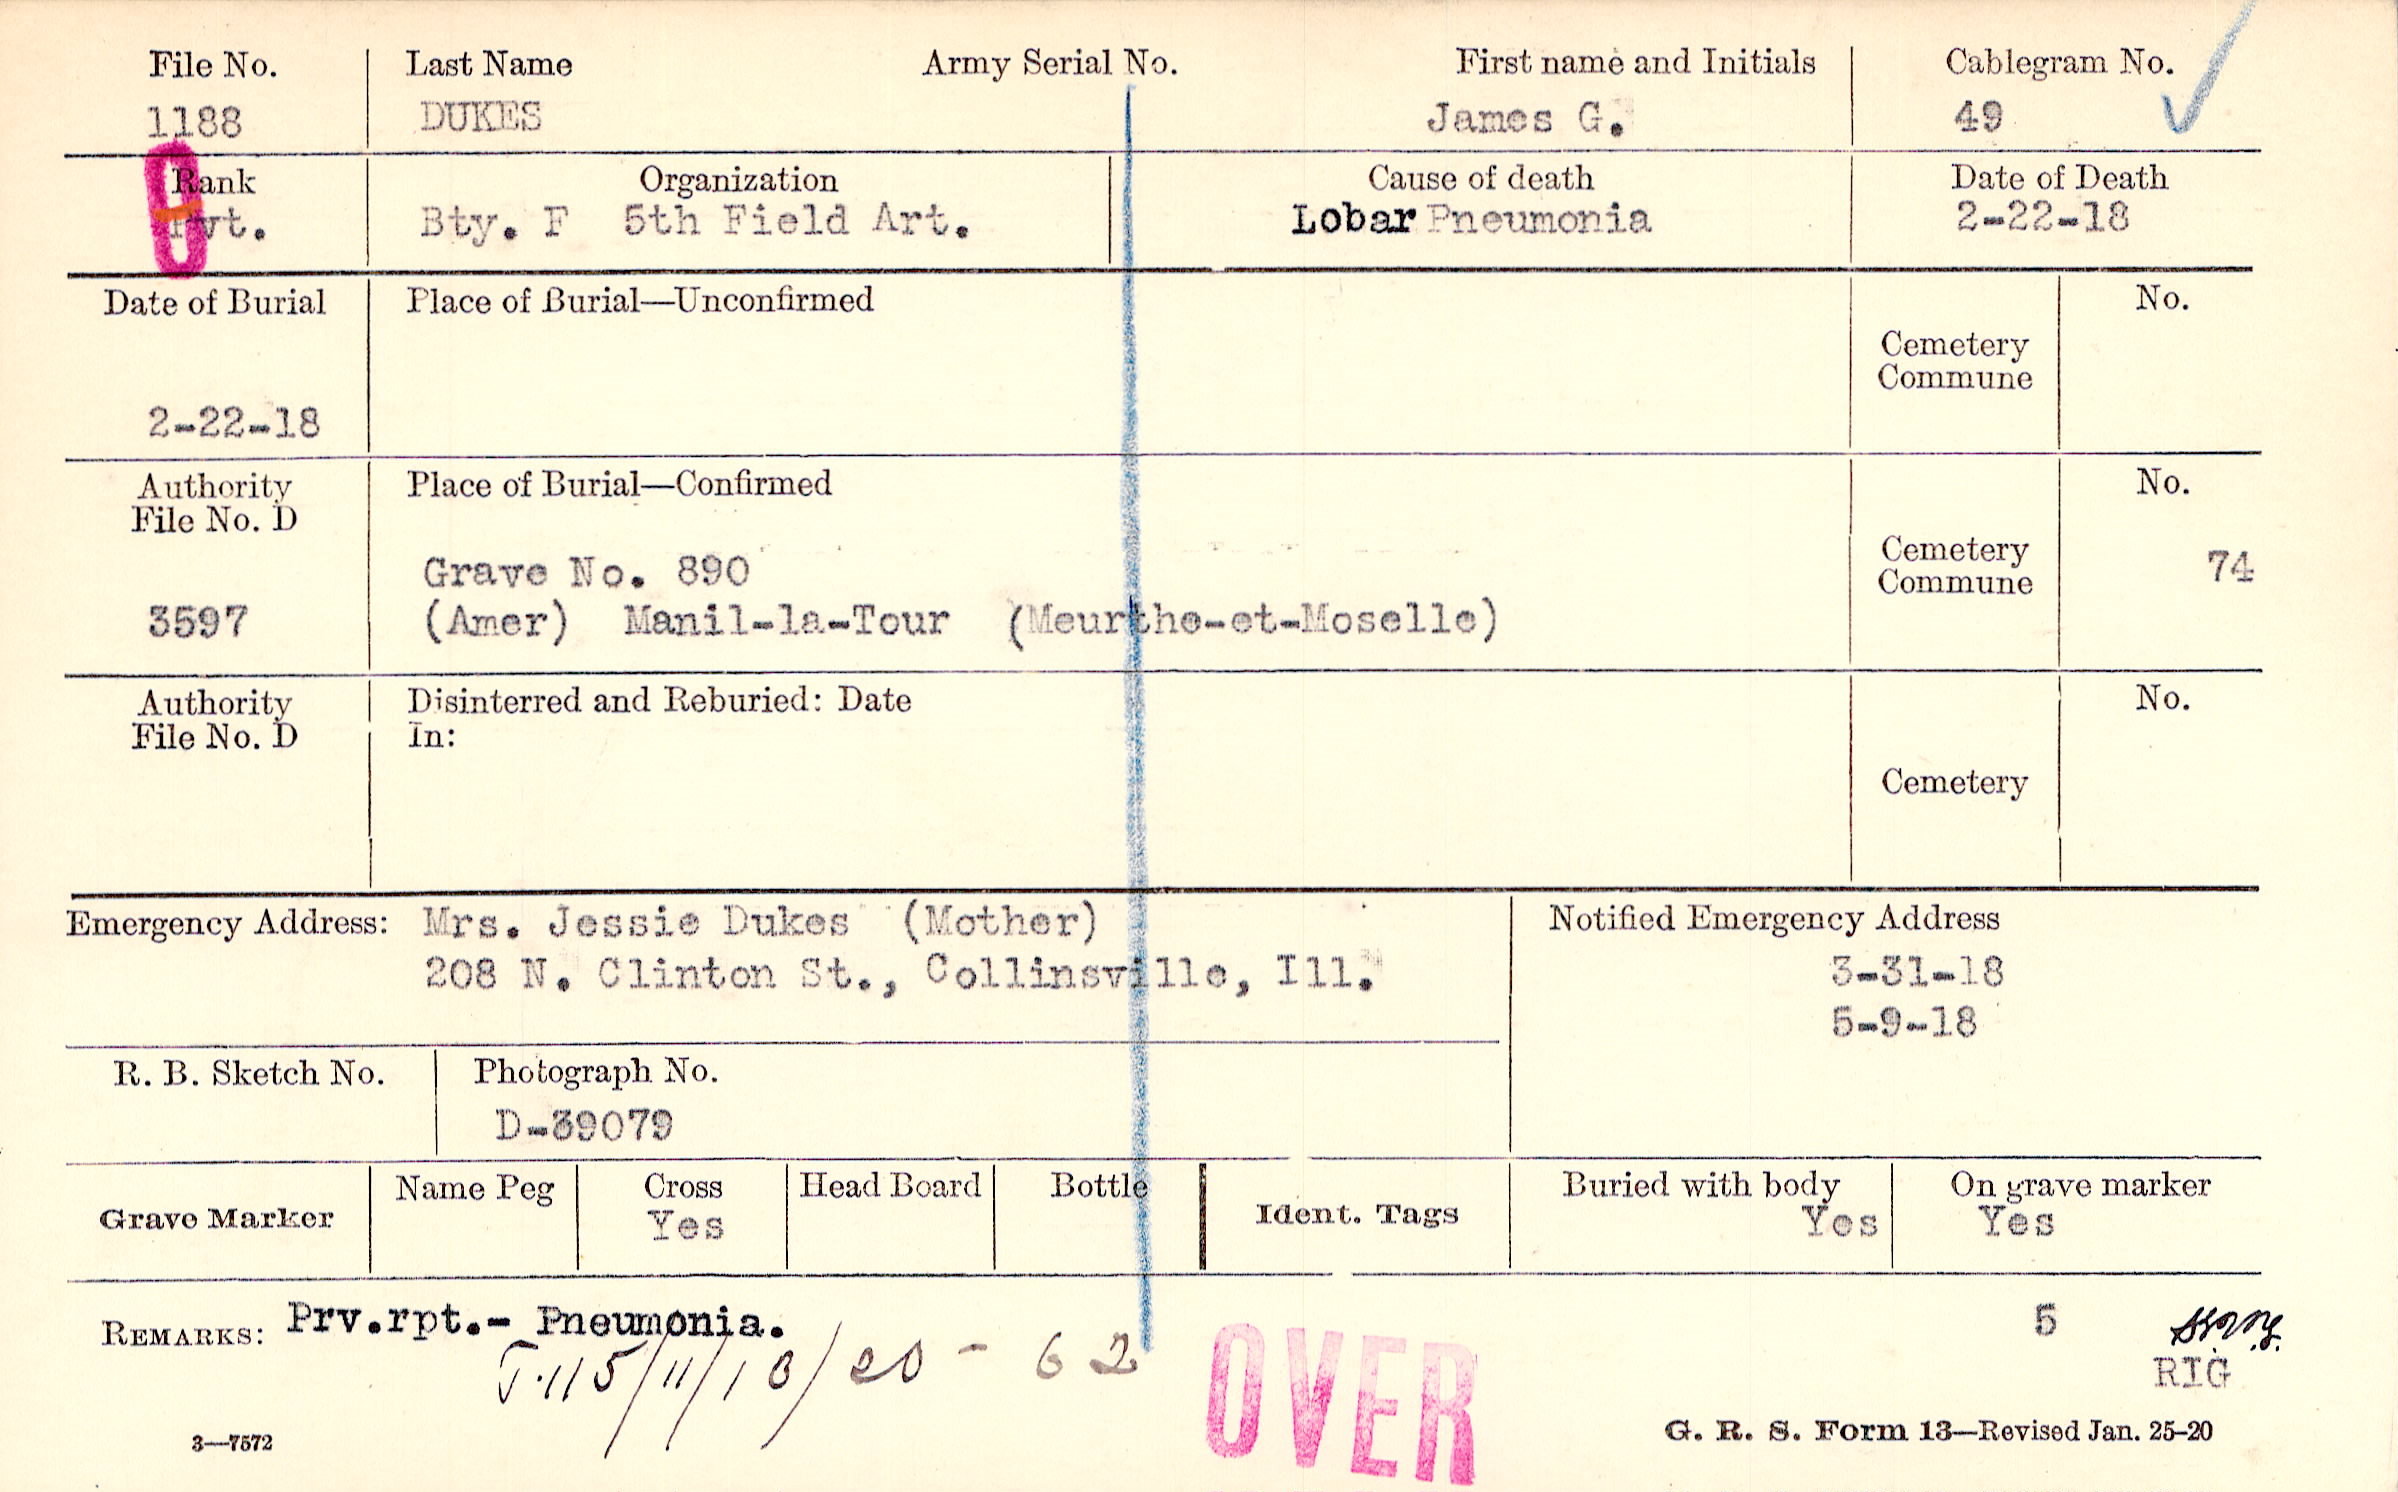 File No. Last Name Army Serial No. First name and Initials Cablegram No.
1188 DUKES James G. 49
Rank Organization Cause of death Date of Death
Pvt. Bty. F 5th Field Art. Lobar Pneumonia 2-22-18
Date of Burial Place of Burial—Unconfirmed No.
Cemetery
Commune
2-22-18
Authority Place of Burial—Confirmed No.
File No. D
Cemetery
Grave No. 890 Commune 74
3597 (Amer) Manil-la-Tour (Meurthe-et-Moselle)
Authority Disinterred and Reburied: Date No.
File No. D In:
Cemetery
Emergency Address: Mrs. Jessie Dukes (Mother) Notified Emergency Address
208 N. Clinton St., Collinsville, Ill. 3-31-18
5-9-18
R. B. Sketch No. Photograph No.
D-39079
Name Peg Cross Head Board Bottle Buried with body On grave marker
Grave Marker Yes Ident. Tags Yes Yes
REMARKS: Prv.rpt.- Pneumonia. 5
OVER
RIG
3—7572 G. R. S. Form 13—Revised Jan. 25-20